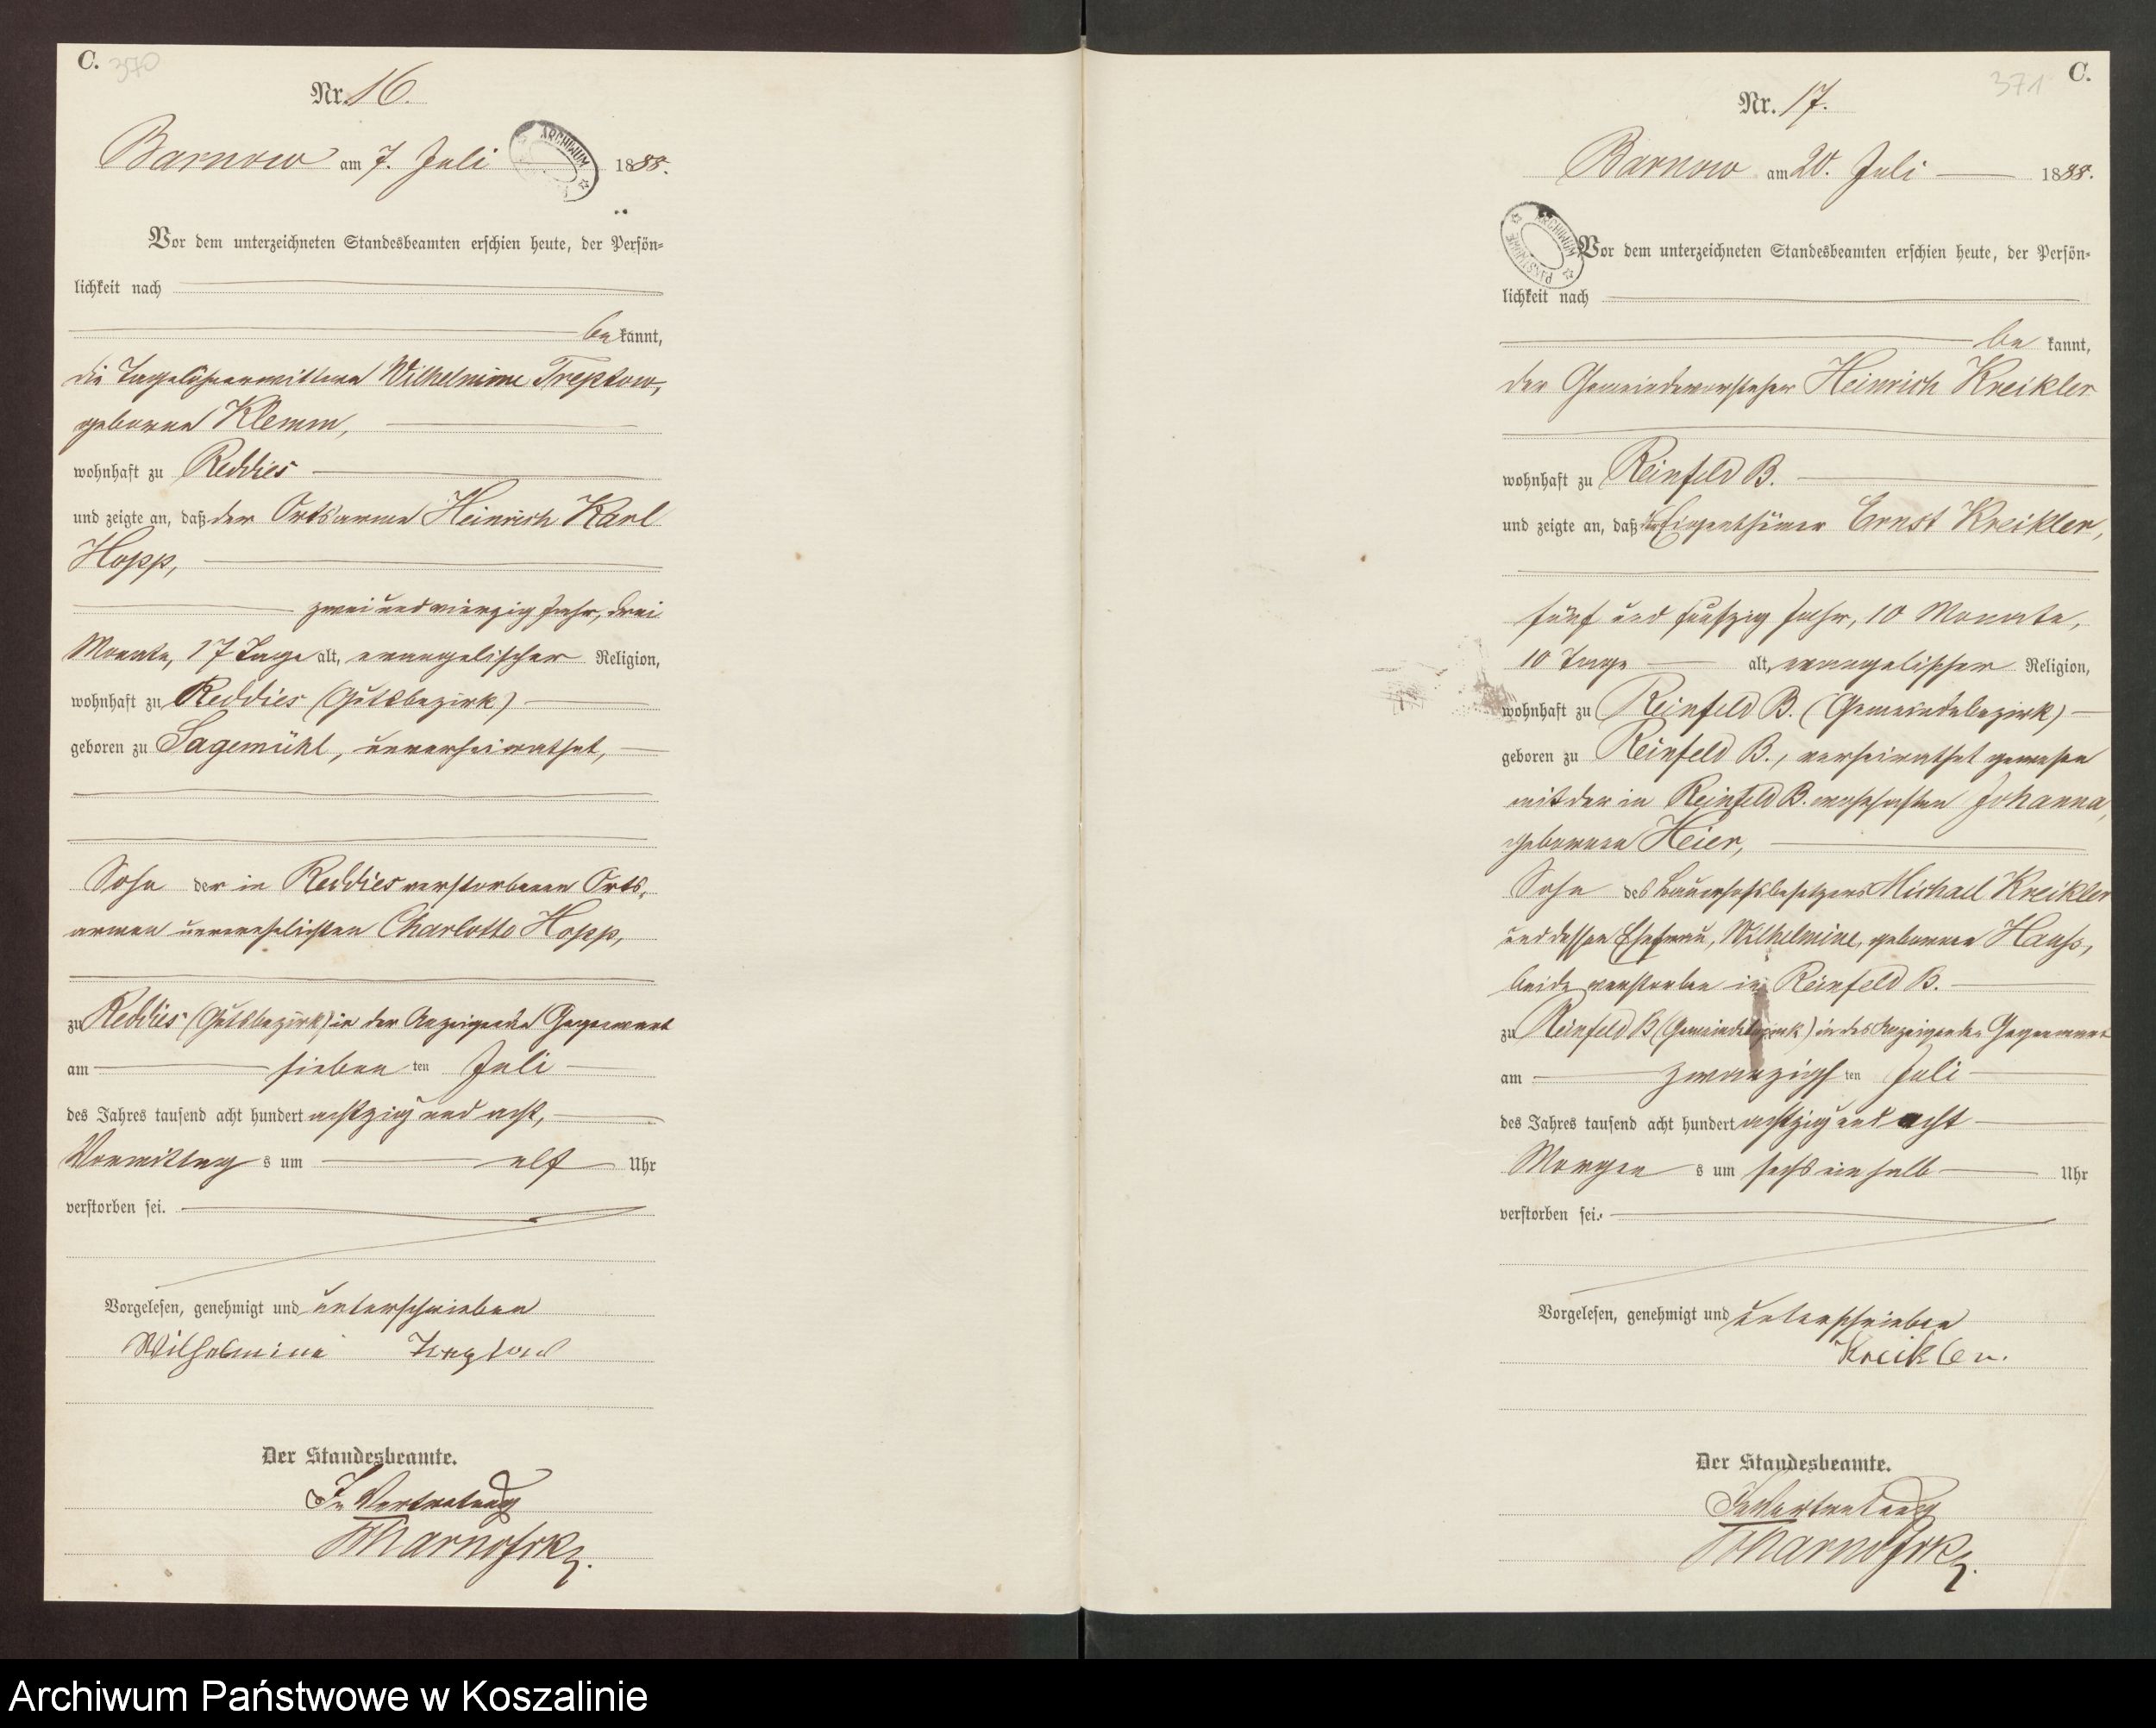 C. 370
Nr. 16.
Barnow am 7. Juli 1888.
ARCHIWUM
Vor dem unterzeichneten Standesbeamten erschien heute, der Persön-
lichkeit nach
be kannt,
die Tagelöhnerwittwe Wilhelmine Treptow,
geborene Klemm,
wohnhaft zu Reddies
und zeigte an, daß der Ortsarme Heinrich Karl
Hopp,
zwei und vierzig Jahr, drei
Monate, 17 Tage alt, evangelischer Religion,
wohnhaft zu Reddies (Gutsbezirk)
geboren zu Sagemühl, unverheirathet,
Sohn der in Reddies verstorbenen Orts-
armen unverehelichten Charlotte Hopp,
zu Reddies (Gutsbezirk) in der Anzeigende Gegenwart
am sieben ten Juli
des Jahres tausend acht hundert achtzig und acht,
Vormittag s um elf Uhr
verstorben sei.
Vorgelesen, genehmigt und unterschrieben
Wilhelmine Treptow
Der Standesbeamte.
In Vertretung
C. 371
Nr. 17.
Barnow am 20. Juli 1888.
ARCHIWUM PAŃSTWOWE
Vor dem unterzeichneten Standesbeamten erschien heute, der Persön-
lichkeit nach
be kannt,
der Gemeindevorsteher Heinrich Kreikler
wohnhaft zu Reinfeld B.
und zeigte an, daß der Eigenthümer Ernst Kreikler,
fünf und funfzig Jahr, 10 Monate,
10 Tage alt, evangelischer Religion,
wohnhaft zu Reinfeld B. (Gemeindebezirk)
geboren zu Reinfeld B., verheirathet gewesen
mit der in Reinfeld B. wohnhaften Johanna,
geborenen Heier,
Sohn des Bauerhofsbesitzers Michael Kreikler
und dessen Ehefrau, Wilhelmine, geborenen Hanss,
beide verstorben in Reinfeld B.
zu Reinfeld B (Gemeindebezirk) in des Anzeigenden Gegenwart
am zwanzigs ten Juli
des Jahres tausend acht hundert achtzig und acht
Morgen s um sechs ein halb Uhr
verstorben sei.
Vorgelesen, genehmigt und unterschrieben
Kreikler.
Der Standesbeamte.
In Vertretung
Archiwum Państwowe w Koszalinie